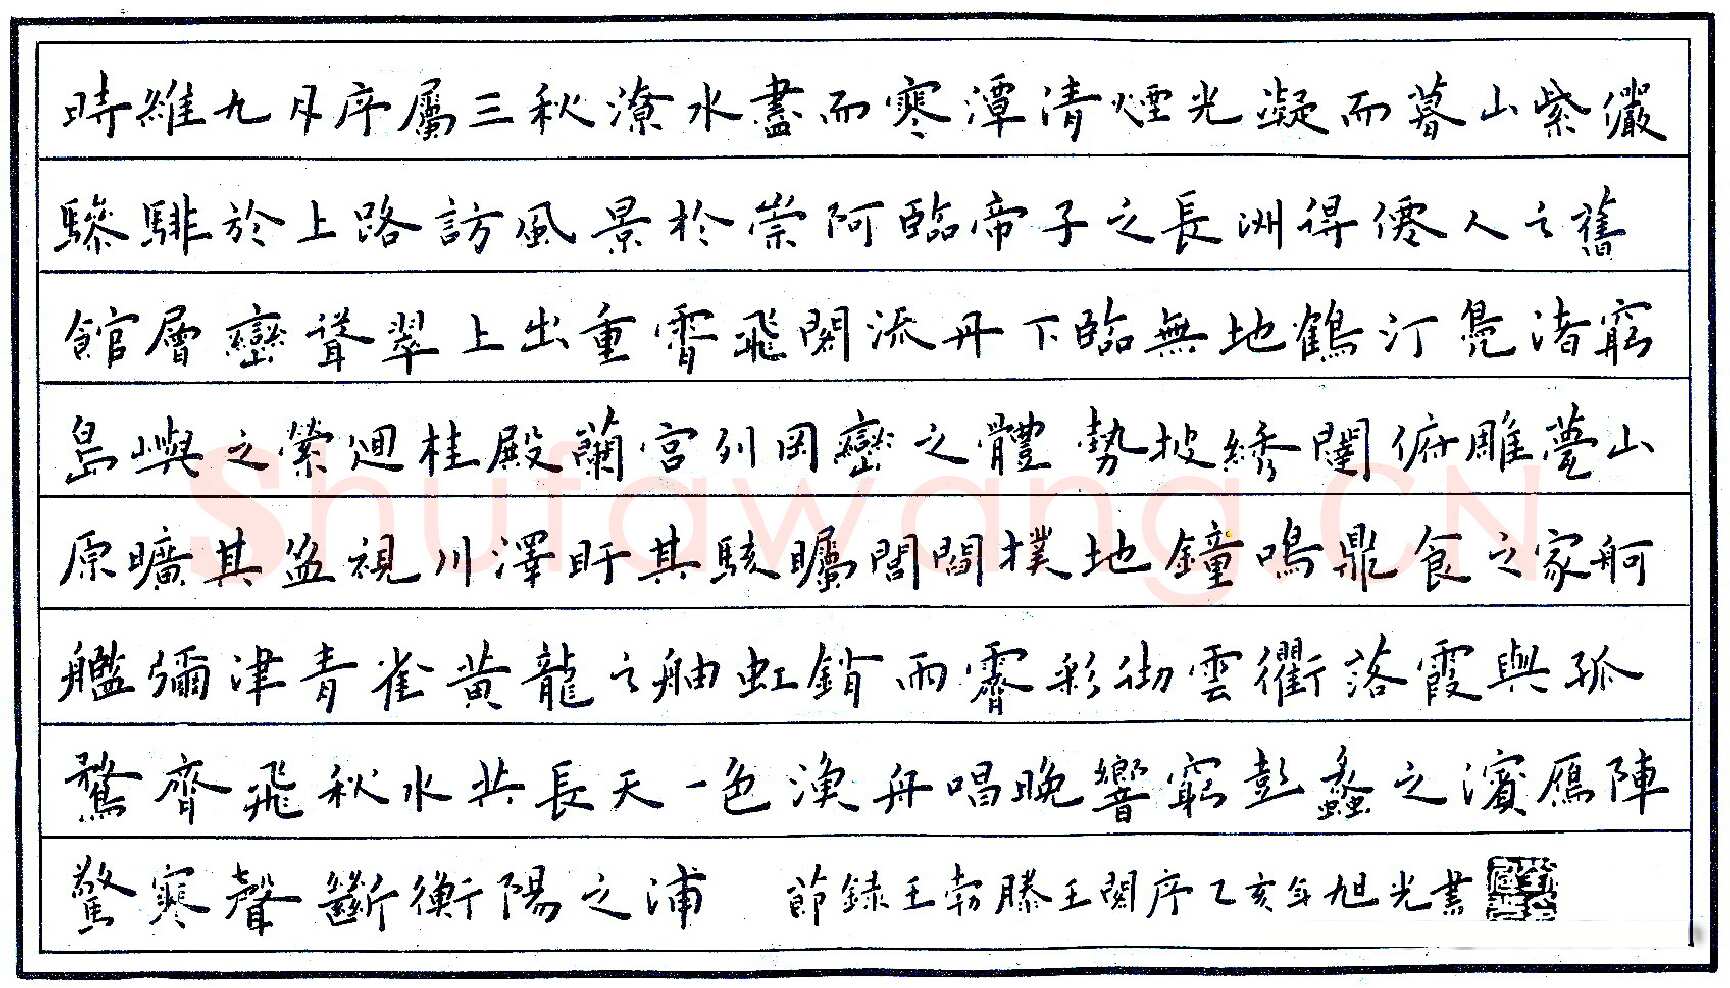 時維九月序屬三秋潦水盡而寒潭清煙光凝而暮山紫儼
驂騑於上路訪風景於崇阿臨帝子之長洲得僊人之舊
館層巒聳翠上出重霄飛閣流丹下臨無地鶴汀鳧渚窮
島嶼之縈迴桂殿蘭宮列岡巒之體勢披綉闥俯雕甍山
原曠其盈視川澤盱其駭矚閭閻撲地鐘鳴鼎食之家舸
艦彌津青雀黃龍之舳虹銷雨霽彩彻雲衢落霞與孤
鶩齊飛秋水共長天一色漁舟唱晚響窮彭蠡之濱雁陣
驚寒聲斷衡陽之浦 節錄王勃滕王閣序乙亥年旭光書
shufawang.CN